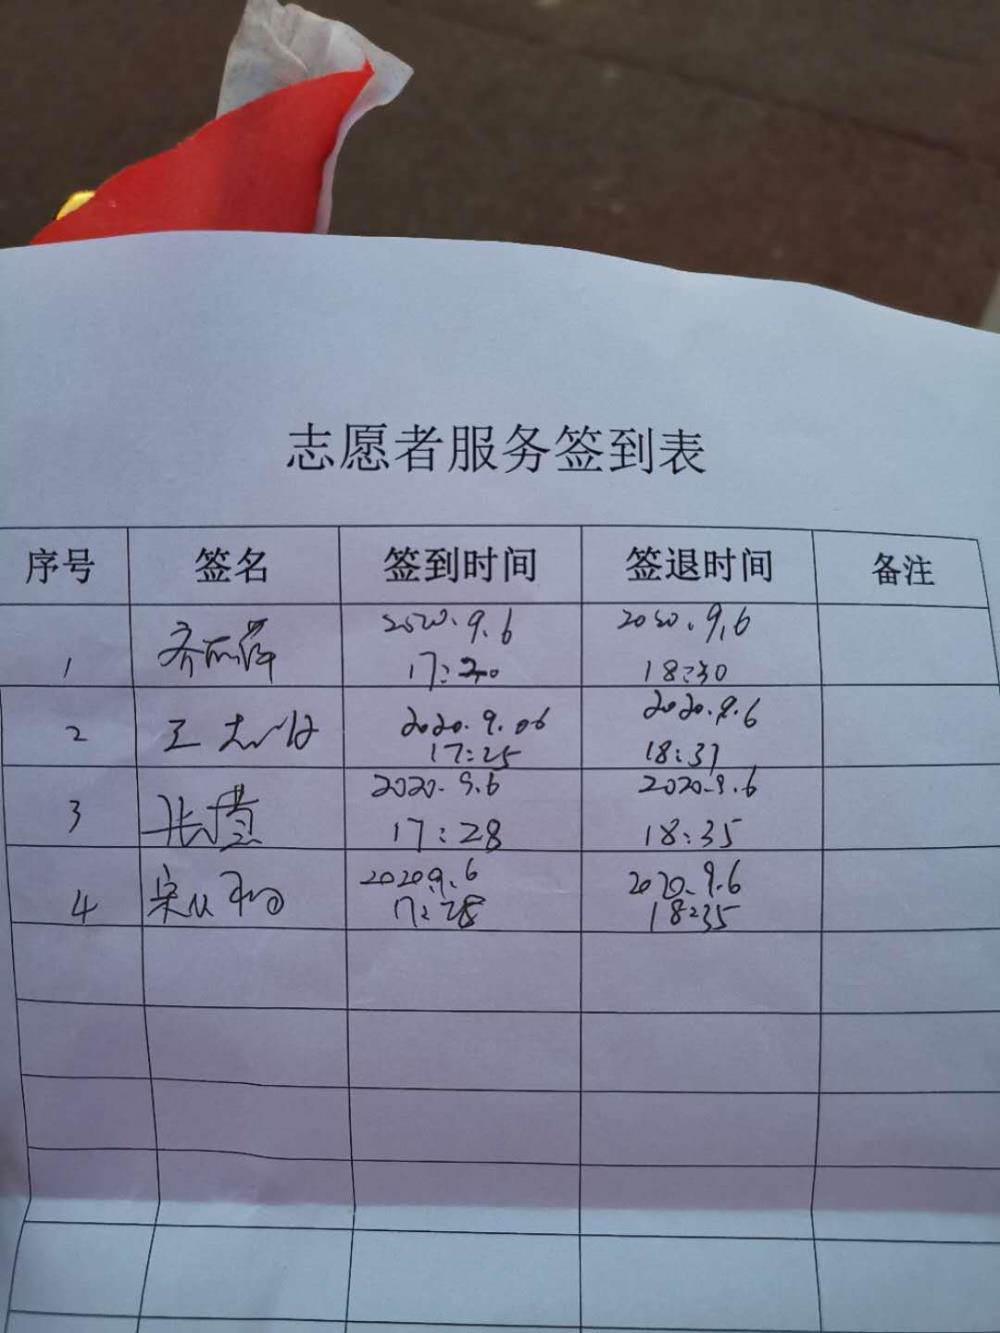 志愿者服务签到表
序号 签名 签到时间 签退时间 备注
2020.9.6 2020.9.6
1 17:20 18:30
2020.9.06 2020.9.6
2 王志 17:25 18:31
2020.9.6 2020.9.6
3 张 17:28 18:35
2020.9.6 2020.9.6
4 宋 17:28 18:35